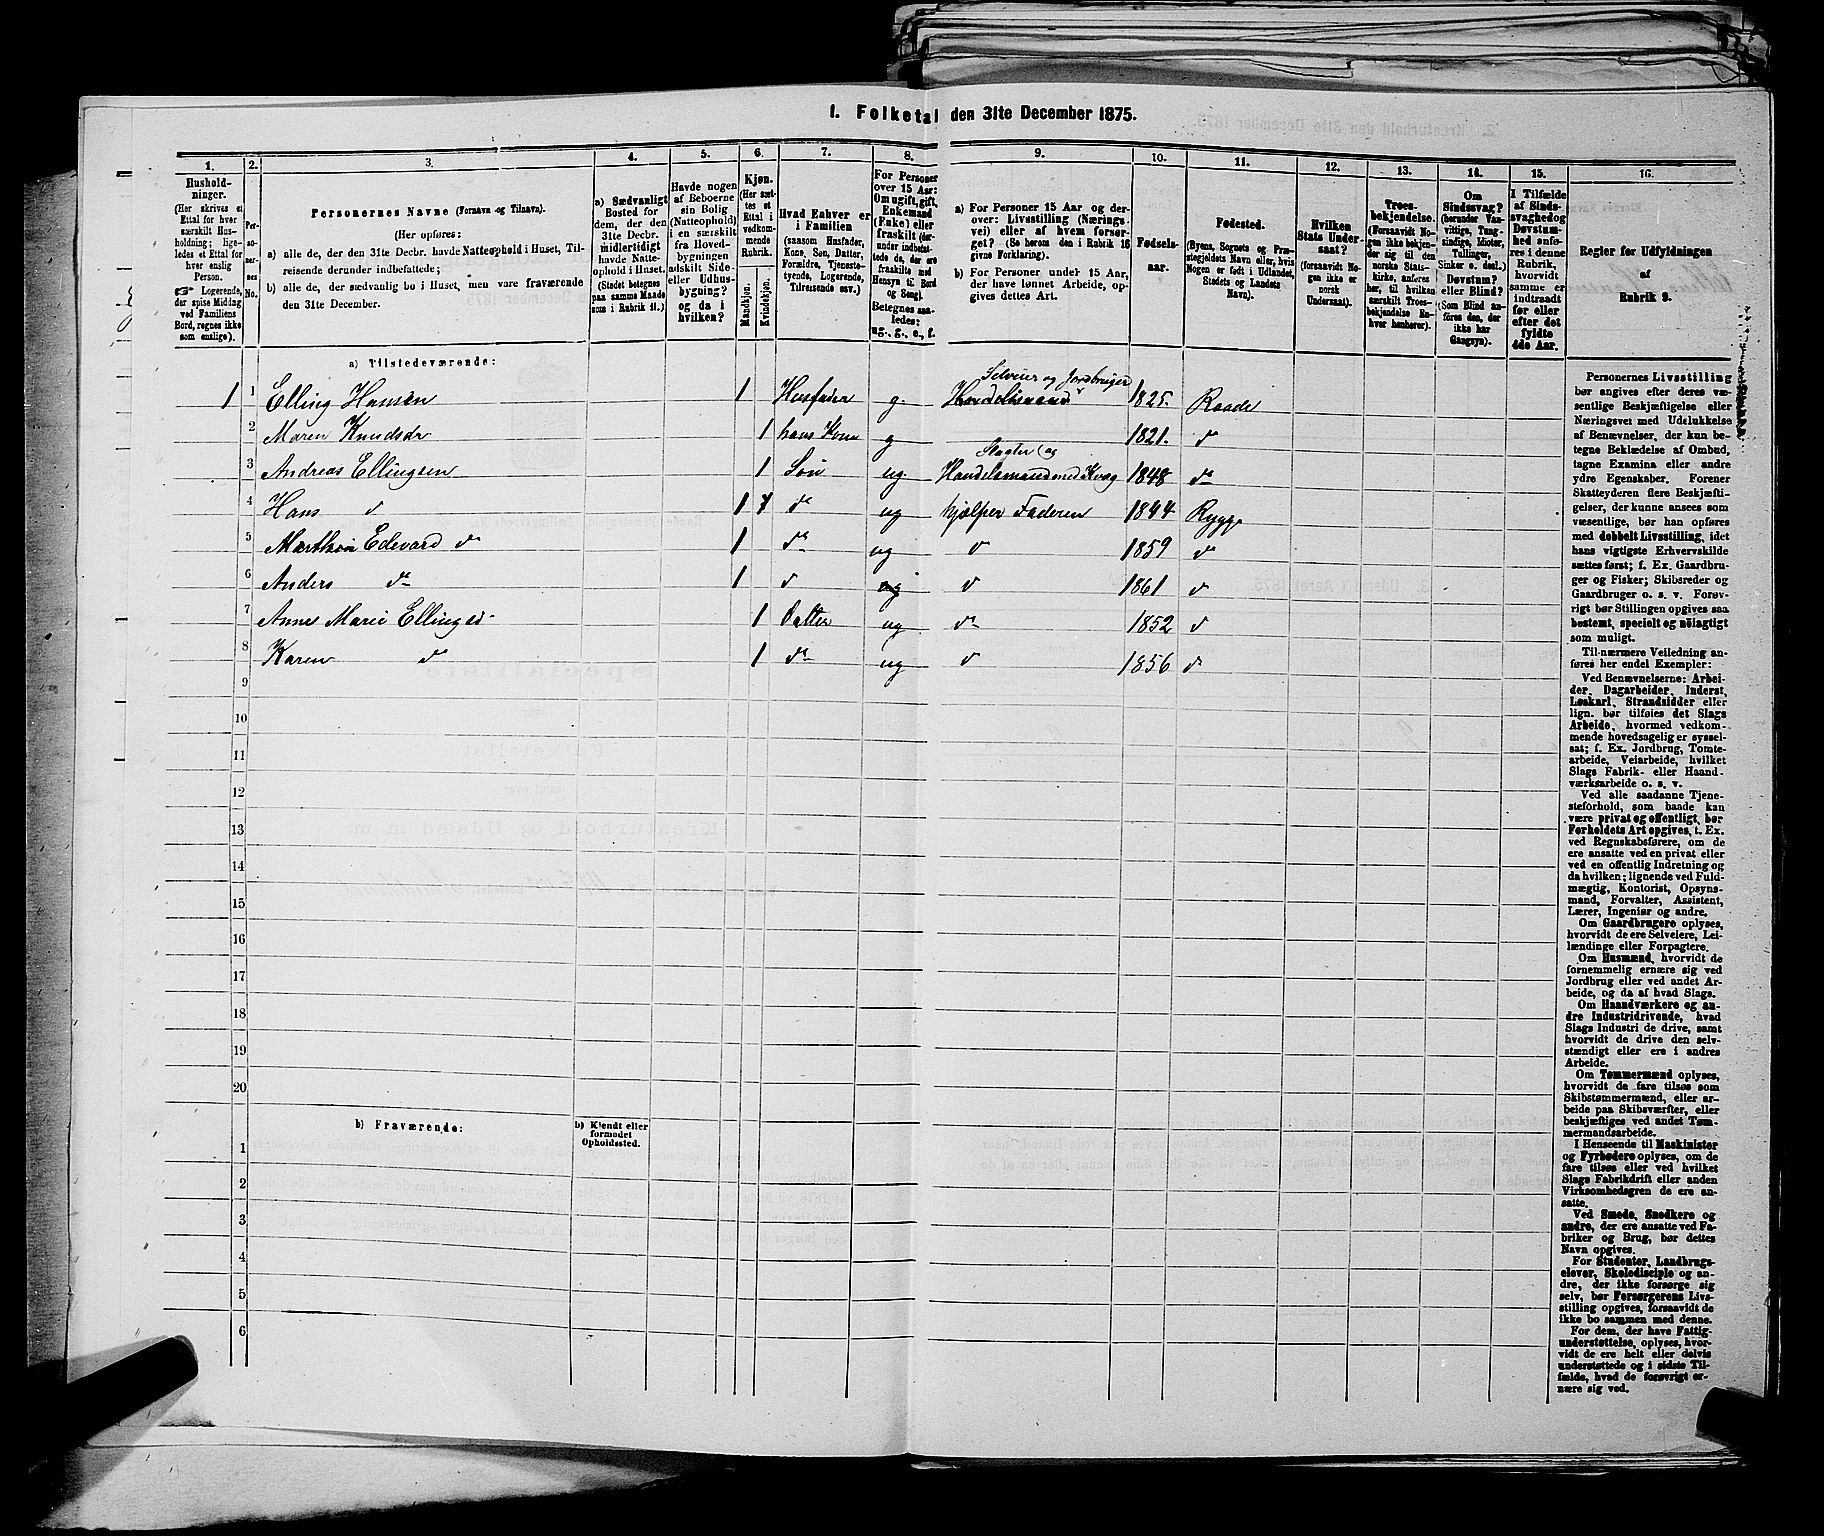 1. Folketal den 31te December 1875.
1. 2. 3. 4. 5. 6. 7. 8. 9. 10. 11. 12. 13. 14. 15. 16.
Husholdninger.
(Her skrives et
Ettal for hver
særskilt Husholdning;
ligeledes et Ettal
for hver
enslig
Person.
Logerende,
der spise Middag
ved Familiens
Bord, regnes ikke
som enslige).
Personernes No.
Personernes Navne (Fornavn og Tilnavn).
(Her opføres:
a) alle de, der den 31te Decbr. havde Natteophold i Huset, Tilreisende derunder indbefattede;
b) alle de, der sædvanlig bo i Huset, men vare fraværende
den 31te December.
a) Sædvanligt
Bosted for
dem, der den
31te Decbr.
midlertidigt
havde Natteophold
i Huset.
(Stedet betegnes
paa samme Maade
som i Rubrik 11.)
Havde nogen
af Beboerne
sin Bolig
(Natteophold)
i en særskilt
fra Hovedbygningen
adskilt Side-
eller Udhusbygning?
og da i
hvilken?
Kjøn.
(Her sættes
et
Ettal i
vedkommende
Rubrik.
Mandkjøn.
Kvindekjøn.
Hvad Enhver er
i Familien
(saasom Husfader,
Kone, Søn, Datter,
Forældre, Tjenestetyende,
Logerende,
Tilreisende osv.)
For Personer
over 15 Aar:
Om ugift, gift,
Enkemand
(Enke) eller
fraskilt (derunder
indbefattede
de, der ere
fraskilte med
Hensyn til Bord
og Seng).
Betegnes saaledes:
ug., g., e., f.
a) For Personer 15 Aar og derover:
Livsstilling (Næringsvei)
eller af hvem forsørget?
(Se herom den i Rubrik 16
givne Forklaring).
b) For Personer under 15 Aar,
der have lønnet Arbeide, opgives
dettes Art.
Fødselsaar.
Fødested.
(Byens, Sognets og Præstegjeldets
Navn eller, hvis
Nogen er født i Udlandet,
Stedets og Landets
Navn).
Hvilken
Stats Undersaat?
(forsaavidt Nogen
ikke er
norsk
Undersaat).
Troesbekjendelse.
(Forsaavidt Nogen
ikke bekjender
sig til den
norske Statskirke,
anføres
her, til hvilken
særskilt Troesbekjendelse
Enhver
henhører).
Om
Sindssvag?
(herunder Vanvittige,
Tungsindige,
Idioter,
Tullinger,
Sinker o. desl.)
Døvstum?
eller Blind?
(Som Blind anføres
den, der
ikke har
Gangsyn).
I Tilfælde
af Sindssvaghed
og
Døvstumhed
anføres
i denne
Rubrik,
hvorvidt
samme er
indtraadt
før eller
efter det
fyldte
4de Aar.
Regler for Udfyldningen
af
Rubrik 9.
a) Tilstedeværende:
Selveier og Jordbruger
1 1 Elling Hansen 1 Husfader g. Handelsmand 1825. Raade
2 Maren Knudsdr 1 hans Kone g 1821. do
Slagter og
3 Andreas Ellingsen 1 Søn ug Handelsmand med Kvæg 1848 do
4 Hans do 1 do ug hjælper Faderen 1844 Rygge
5 Marthin Edevard do 1 do ug do 1859 do
6 Anders do 1 do ug do 1861 do
7 Anne Marie Ellingsd 1 Datter ug do 1852 do
8 Karen do 1 do ug do 1856 do
9
10
11
12
13
14
15
16
17
18
19
20
b) Fraværende: b) Kjendt eller
formodet
Opholdssted.
1
2
3
4
5
6
Personernes Livsstilling
bør angives efter deres væsentlige
Beskjæftigelse eller
Næringsvei med Udelukkelse
af Benævnelser, der kun betegne
Beklædelse af Ombud,
tagne Examina eller andre
ydre Egenskaber. Forener
Skatteyderen flere Beskjæftigelser,
der kunne ansees som
væsentlige, bør han opføres
med dobbelt Livsstilling, idet
hans vigtigste Erhvervskilde
sættes først; f. Ex. Gaardbruger
og Fisker; Skibsreder og
Gaardbruger o. s. v. Forøvrigt
bør Stillingen opgives saa
bestemt, specielt og nøiagtigt
som muligt.
Til nærmere Veiledning anføres
her endel Exempler:
Ved Benævnelserne: Arbeider,
Dagarbeider, Inderst,
Løskarl, Strandsidder eller
lign. bør tilføies det Slags
Arbeide, hvormed vedkommende
hovedsagelig er sysselsat;
f. Ex. Jordbrug, Tomtearbeide,
Veiarbeide, hvilket
Slags Fabrik- eller Haandværksarbeide
o. s. v.
Ved alle saadanne Tjenesteforhold,
som baade kan
være privat og offentligt, bør
Forholdets Art opgives, t. Ex.
ved Regnskabsførere, om de
ere ansatte ved en privat eller
ved en offentlig Indretning og
da hvilken; lignende ved Fuldmægtig,
Kontorist, Opsynsmand,
Forvalter, Assistent,
Lærer, Ingeniør og andre.
Om Gaardbrugere oplyses,
hvorvidt de ere Selveiere, Leilændinge
eller Forpagtere.
Om Husmænd, hvorvidt de
fornemmelig ernære sig ved
Jordbrug eller ved andet Arbeide,
og da af hvad Slags.
Om Haandværkere og andre
Industridrivende, hvad
Slags Industri de drive, samt
hvorvidt de drive den selvstændigt
eller ere i andres
Arbeide.
Om Tømmermænd oplyses,
hvorvidt de fare tilsøs som
Skibstømmermænd, eller arbeide
paa Skibsværfter, eller
beskjæftiges ved andet Tømmermandsarbeide.
I Henseende til Maskinister
og Fyrbødere oplyses, om de
fare tilsøs eller ved hvilket
Slags Fabrikdrift eller anden
Virksomhedsgren de ere ansatte.
Ved Smede, Snedkere og
andre, der ere ansatte ved Fabriker
og Brug, bør dettes
Navn opgives.
For Studenter, Landbrugselever,
Skoledisciple og andre,
der ikke forsørge sig
selv, bør Forsørgerens Livsstilling
opgives, forsaavidt de
ikke bo sammen med denne.
For dem, der have Fattigunderstøttelse,
oplyses, hvorvidt
de ere helt eller delvis
understøttede og i sidste Tilfælde,
hvad de forøvrigt ernære
sig ved.